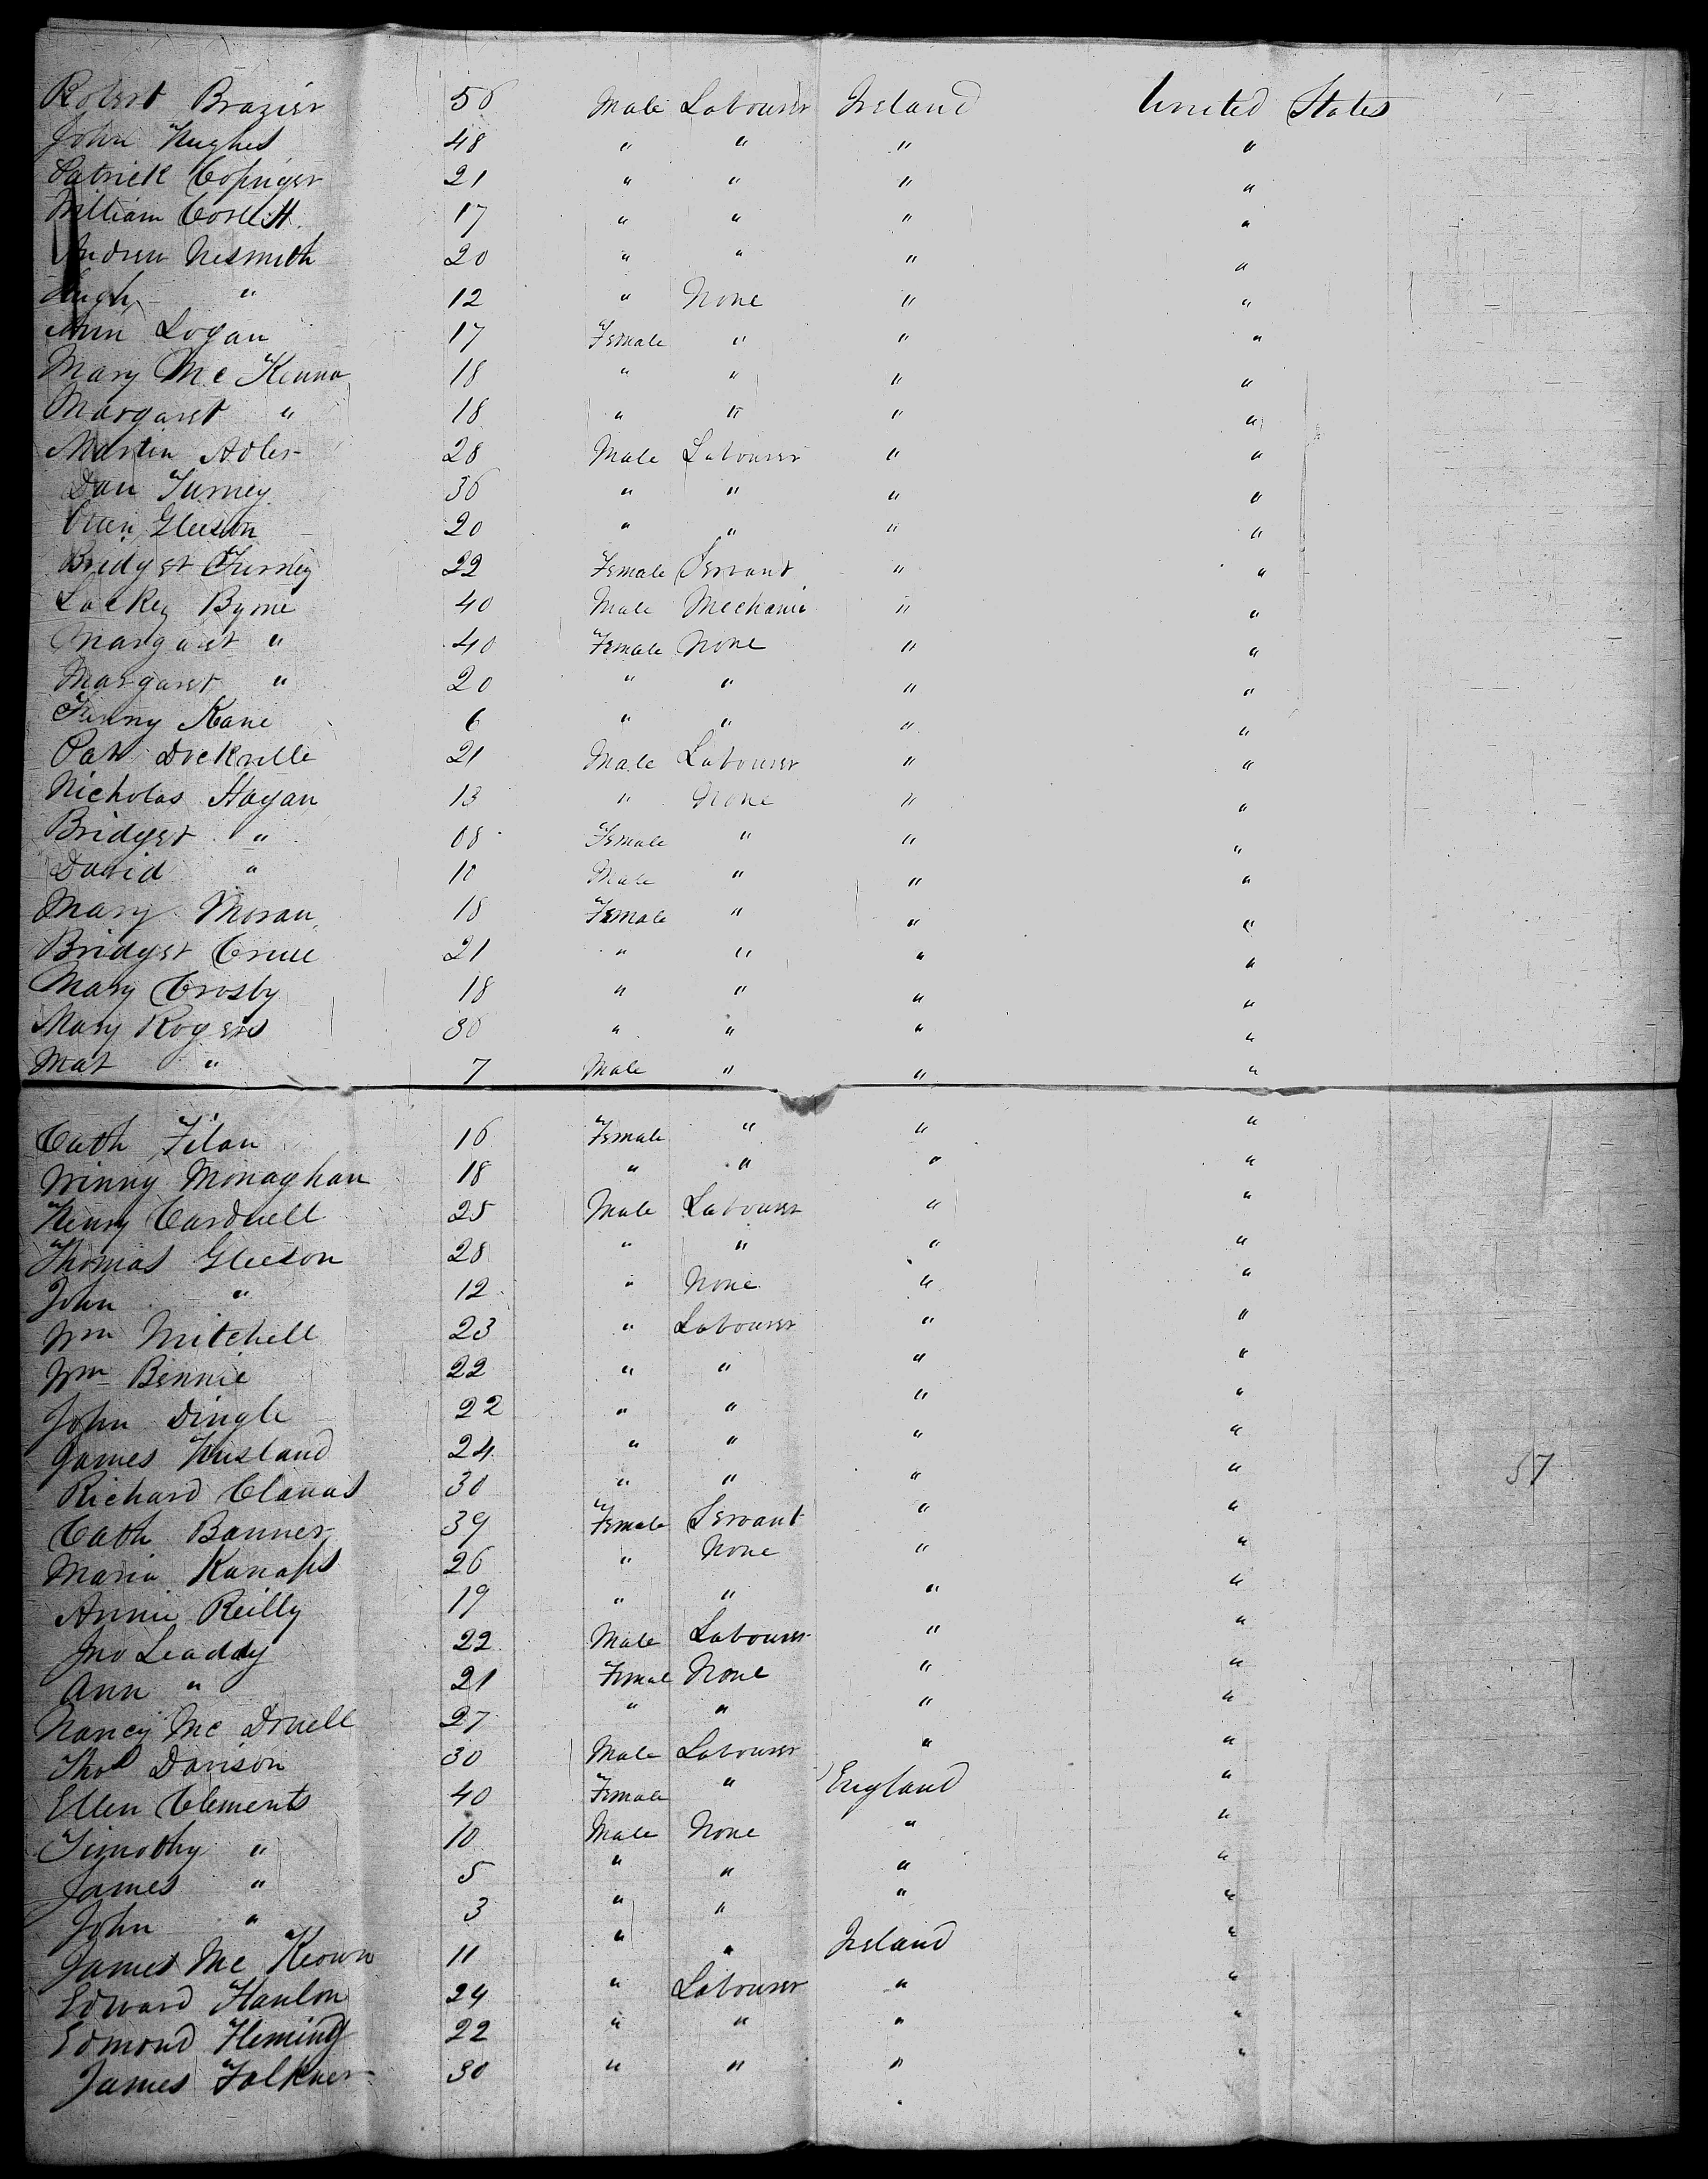 Robert Brazier 56 Male Labourer Ireland United States
John Hughes 48 " " " "
Patrick Copinger 21 " " " "
William Corlett 17 " " " "
Andrew Nesmith 20 " " " "
Hugh " 12 " None " "
Ann Logan 17 Female " " "
Mary Mc Kenna 18 " " " "
Margaret " 18 " " " "
Martin Adler 28 Male Labourer " "
Dan Turney 36 " " " "
Gleeson 20 " " " "
Bridget Turney 22 Female Servant " "
Lackey Byrne 40 Male Mechanic " "
Margaret " 40 Female None " "
Margaret " 20 " " " "
Kane 6 " " " "
Pat 21 Male Labourer " "
Nicholas Hagan 13 " None " "
Bridget " 08 Female " " "
David " 10 Male " " "
Mary Moran 18 Female " " "
Bridget 21 " " " "
Mary Crosby 18 " " " "
Mary Rogers 30 " " " "
Mat " 7 Male " " "
Cath Filan 16 Female " " "
Winny Monaghan 18 " " " "
Henry Cardwell 25 Male Labourer " "
Thomas Gleeson 28 " " " "
John " 12 " None " "
Wm Mitchell 23 " Labourer " "
Wm Bennie 22 " " " "
John Dingle 22 " " " "
James 24 " " " "
Richard 30 " " " " 57
Cath Banner 39 Female Servant " "
Maria 26 " None " "
Annie Reilly 19 " " " "
Jno Leaddy 22 Male Labourer " "
Ann " 21 Female None " "
Nancy Mc 27 " " " "
Thos Davison 30 Male Labourer " "
Ellen Clements 40 Female " England "
Timothy " 10 Male None " "
James " 5 " " " "
John " 3 " " " "
James Mc Keown 11 " " Ireland "
Edward Hanlon 24 " Labourer " "
Edmond Fleming 22 " " " "
James Falkner 30 " " " "